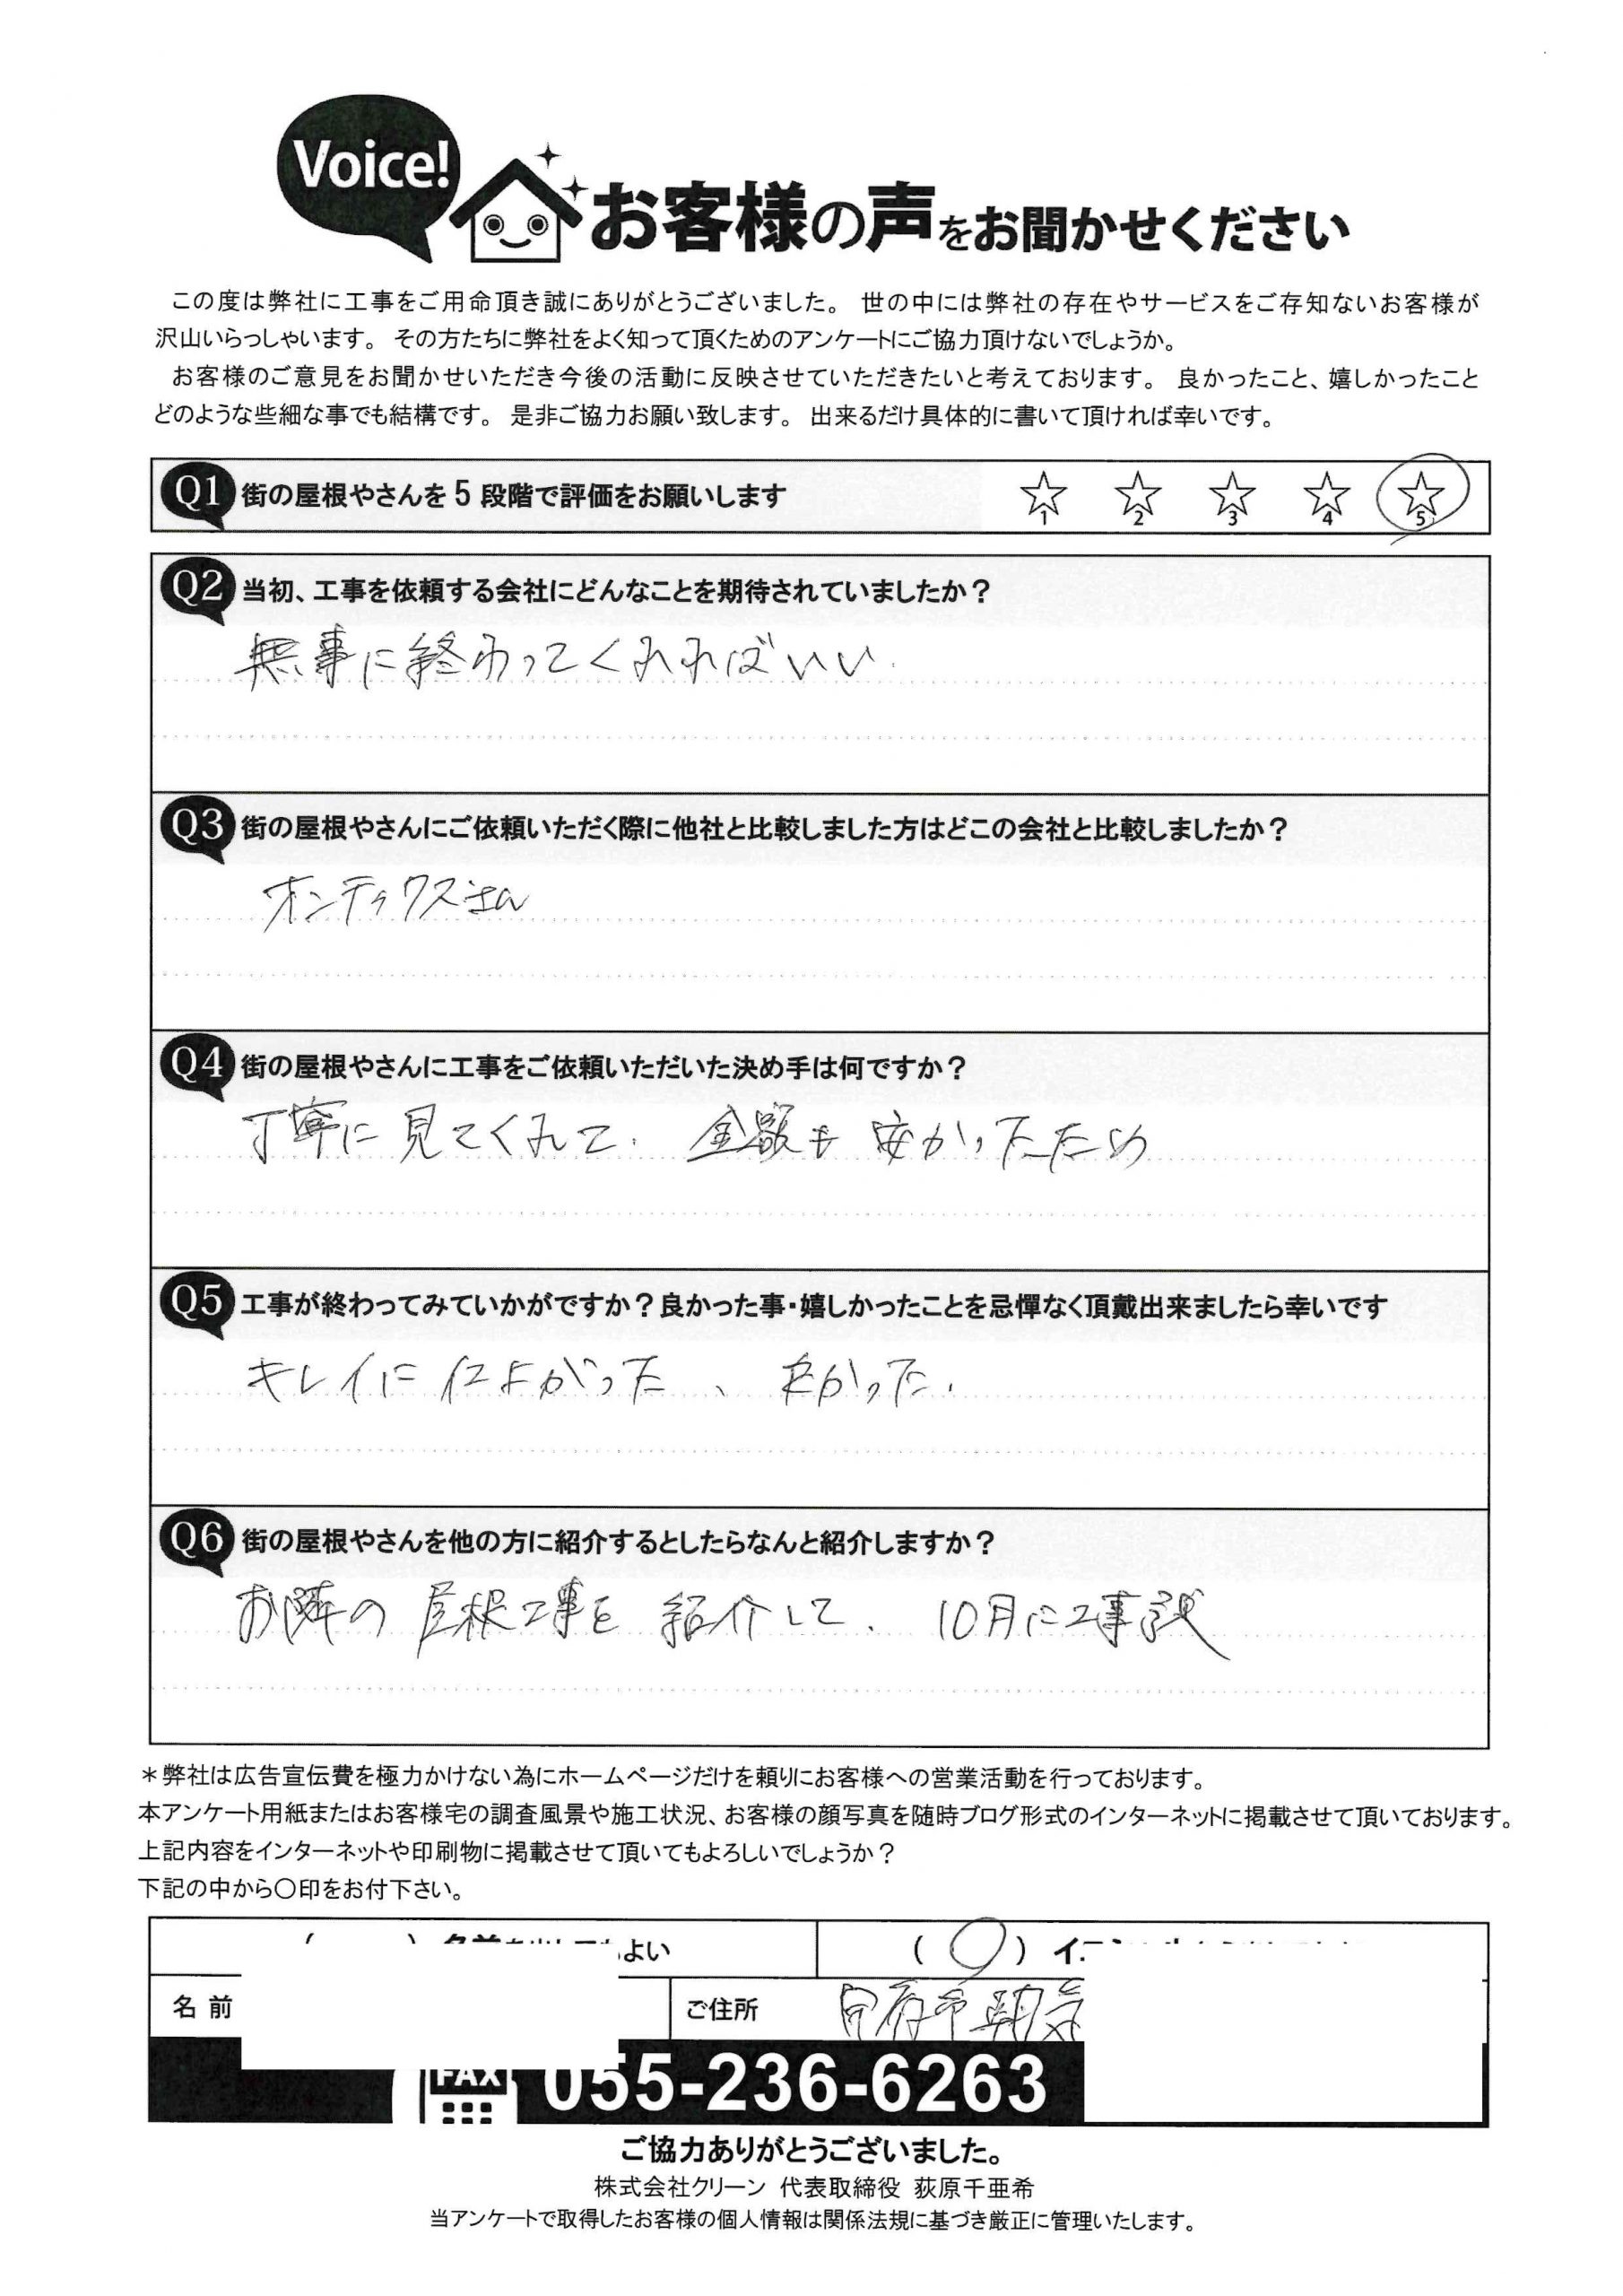 Voice!
お客様の声をお聞かせください
この度は弊社に工事をご用命頂き誠にありがとうございました。 世の中には弊社の存在やサービスをご存知ないお客様が
沢山いらっしゃいます。 その方たちに弊社をよく知って頂くためのアンケートにご協力頂けないでしょうか。
お客様のご意見をお聞かせいただき今後の活動に反映させていただきたいと考えております。 良かったこと、嬉しかったこと
どのような些細な事でも結構です。 是非ご協力お願い致します。 出来るだけ具体的に書いて頂ければ幸いです。
Q1 街の屋根やさんを5段階で評価をお願いします 1 2 3 4 5
Q2 当初、工事を依頼する会社にどんなことを期待されていましたか？
無事に終わってくれればいい.
Q3 街の屋根やさんにご依頼いただく際に他社と比較しました方はどこの会社と比較しましたか？
オンテックスさん
Q4 街の屋根やさんに工事をご依頼いただいた決め手は何ですか？
丁寧に見てくれて、金額も安かったため
Q5 工事が終わってみていかがですか？良かった事・嬉しかったことを忌憚なく頂戴出来ましたら幸いです
キレイに仕上がった、良かった.
Q6 街の屋根やさんを他の方に紹介するとしたらなんと紹介しますか？
お隣の屋根工事を紹介して、10月に工事予定
＊弊社は広告宣伝費を極力かけない為にホームページだけを頼りにお客様への営業活動を行っております。
本アンケート用紙またはお客様宅の調査風景や施工状況、お客様の顔写真を随時ブログ形式のインターネットに掲載させて頂いております。
上記内容をインターネットや印刷物に掲載させて頂いてもよろしいでしょうか？
下記の中から〇印をお付下さい。
( ) よい (〇)
名前 ご住所 甲府市朝気
FAX 055-236-6263
ご協力ありがとうございました。
株式会社クリーン 代表取締役 荻原千亜希
当アンケートで取得したお客様の個人情報は関係法規に基づき厳正に管理いたします。